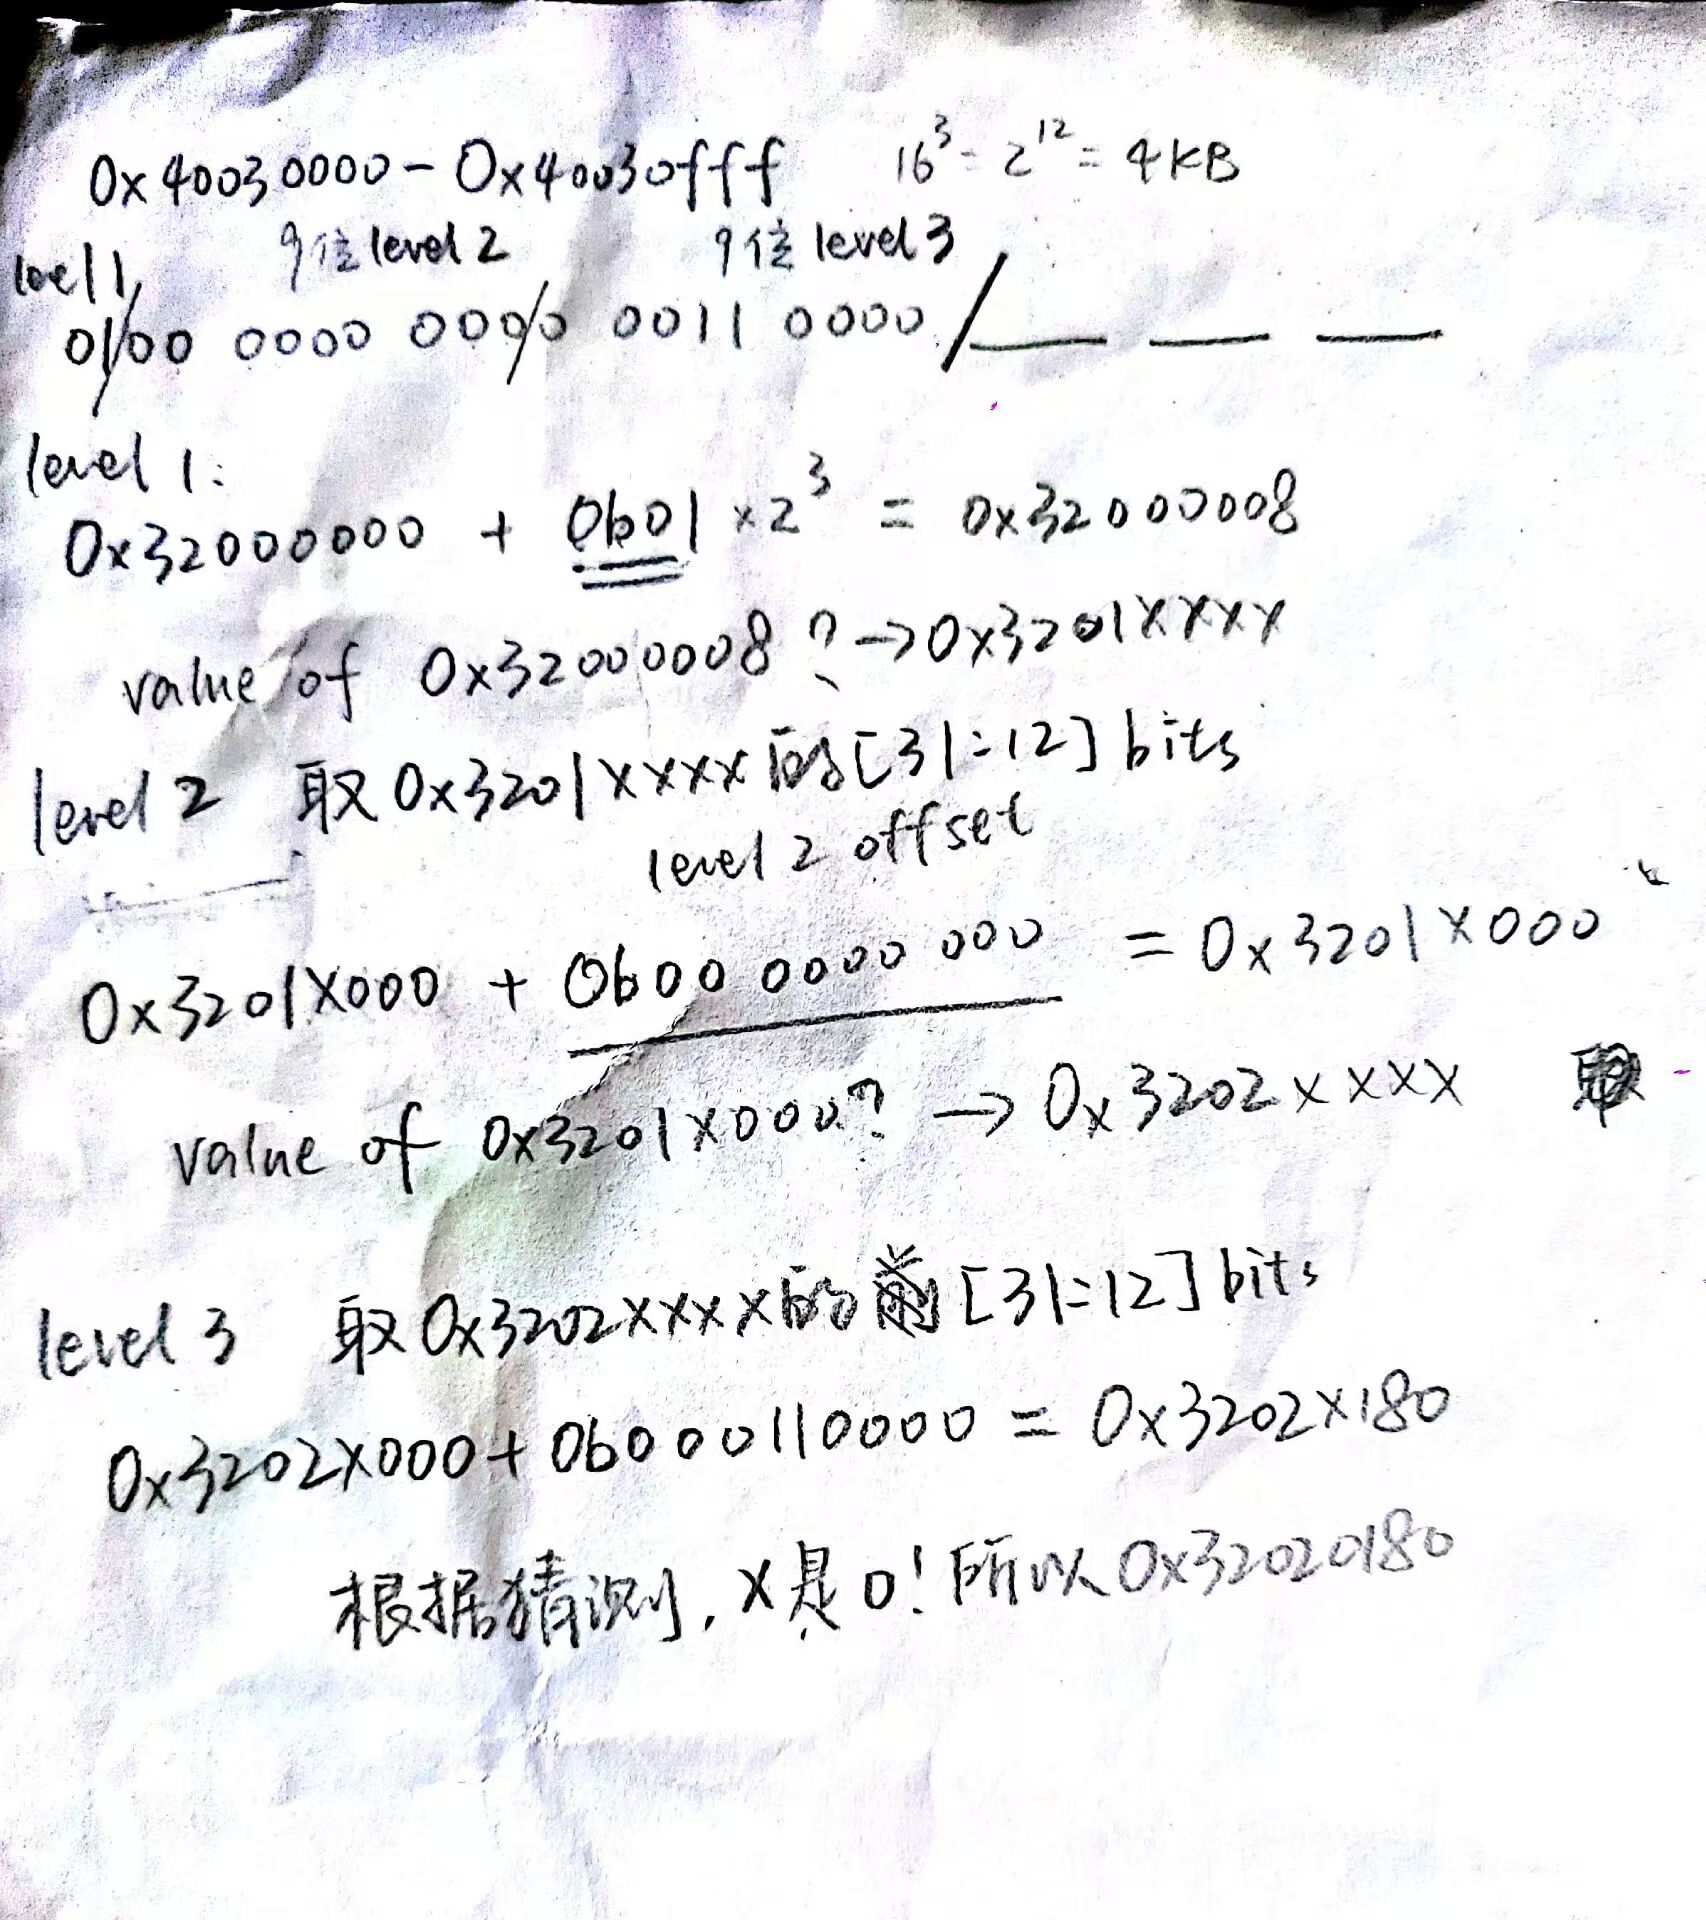 0x40030000-0x40030fff 16³=2¹²=4KB
level1 9位level2 9位level3
01/00 0000 000/0 0011 0000/___ ___ ___
level 1:
0x32000000 + 0b01×2³ = 0x32000008
value of 0x32000008?→0x3201XXXX
level 2 取0x3201XXXX的[31:12]bits
level 2 offset
0x3201X000 + 0b00 0000 000 = 0x3201X000
value of 0x3201X000? → 0x3202XXXX
level 3 取0x3202XXXX的前[31:12]bits
0x3202X000+0b000110000 = 0x3202X180
根据猜测,X是0!所以0x32020180